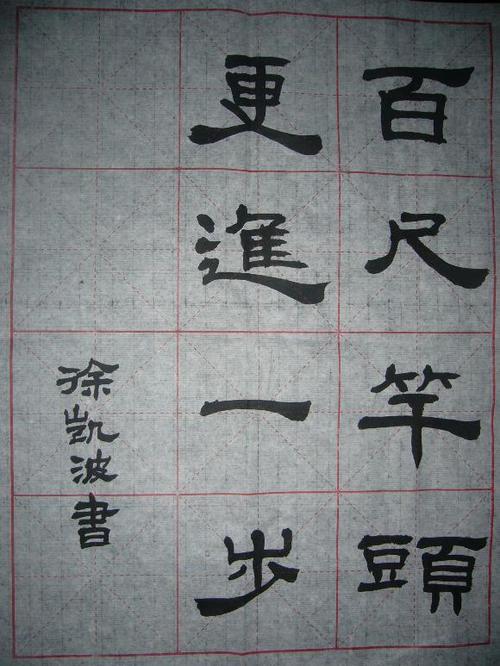 百尺竿頭
更進一步
徐凱波書